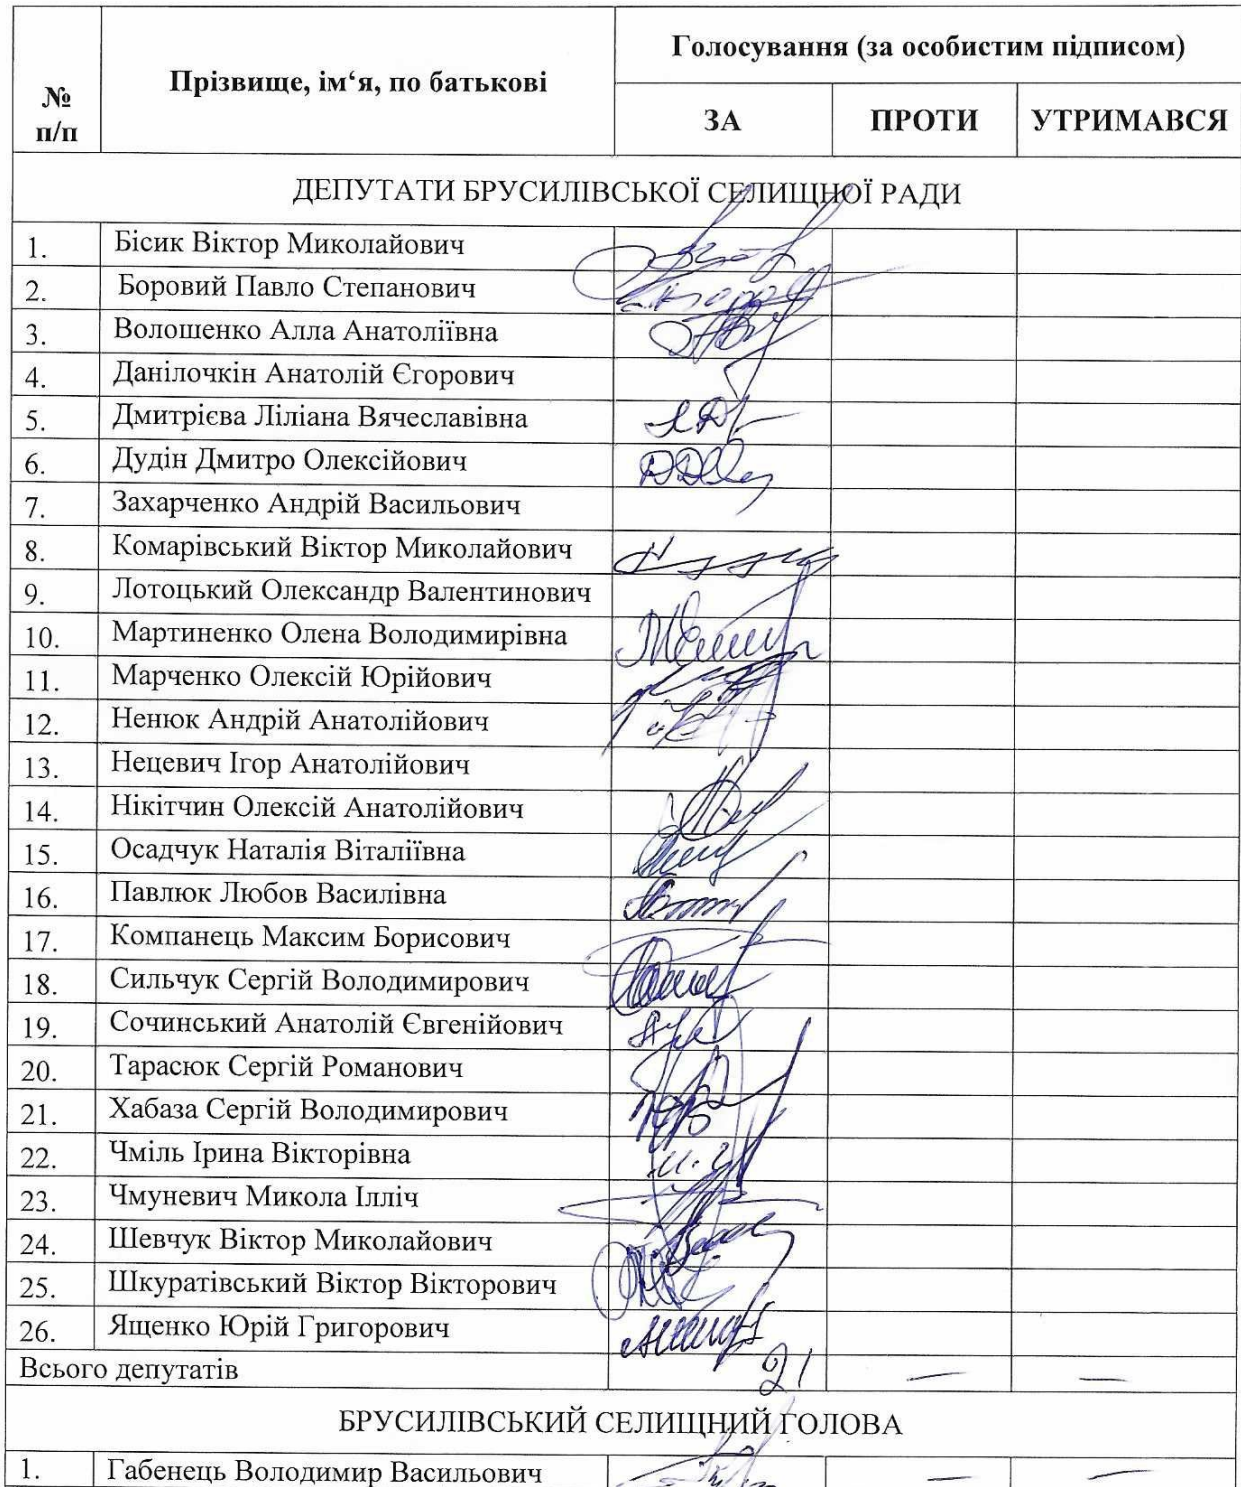 № п/п Прізвище, ім‘я, по батькові Голосування (за особистим підписом)
ЗА ПРОТИ УТРИМАВСЯ
ДЕПУТАТИ БРУСИЛІВСЬКОЇ СЕЛИЩНОЇ РАДИ
1. Бісик Віктор Миколайович
2. Боровий Павло Степанович
3. Волошенко Алла Анатоліївна
4. Данілочкін Анатолій Єгорович
5. Дмитрієва Ліліана Вячеславівна
6. Дудін Дмитро Олексійович
7. Захарченко Андрій Васильович
8. Комарівський Віктор Миколайович
9. Лотоцький Олександр Валентинович
10. Мартиненко Олена Володимирівна
11. Марченко Олексій Юрійович
12. Ненюк Андрій Анатолійович
13. Нецевич Ігор Анатолійович
14. Нікітчин Олексій Анатолійович
15. Осадчук Наталія Віталіївна
16. Павлюк Любов Василівна
17. Компанець Максим Борисович
18. Сильчук Сергій Володимирович
19. Сочинський Анатолій Євгенійович
20. Тарасюк Сергій Романович
21. Хабаза Сергій Володимирович
22. Чміль Ірина Вікторівна
23. Чмуневич Микола Ілліч
24. Шевчук Віктор Миколайович
25. Шкуратівський Віктор Вікторович
26. Ященко Юрій Григорович
Всього депутатів 21 — —
БРУСИЛІВСЬКИЙ СЕЛИЩНИЙ ГОЛОВА
1. Габенець Володимир Васильович — —